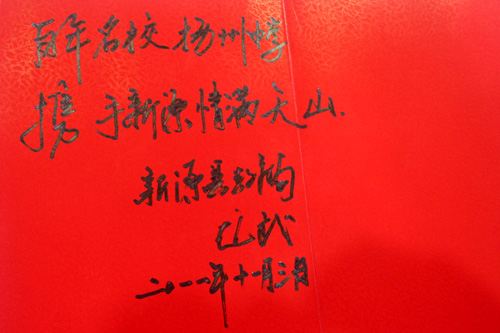 百年名校扬州
携手新源情满天山.
新源县
二〇一一年十一月三日